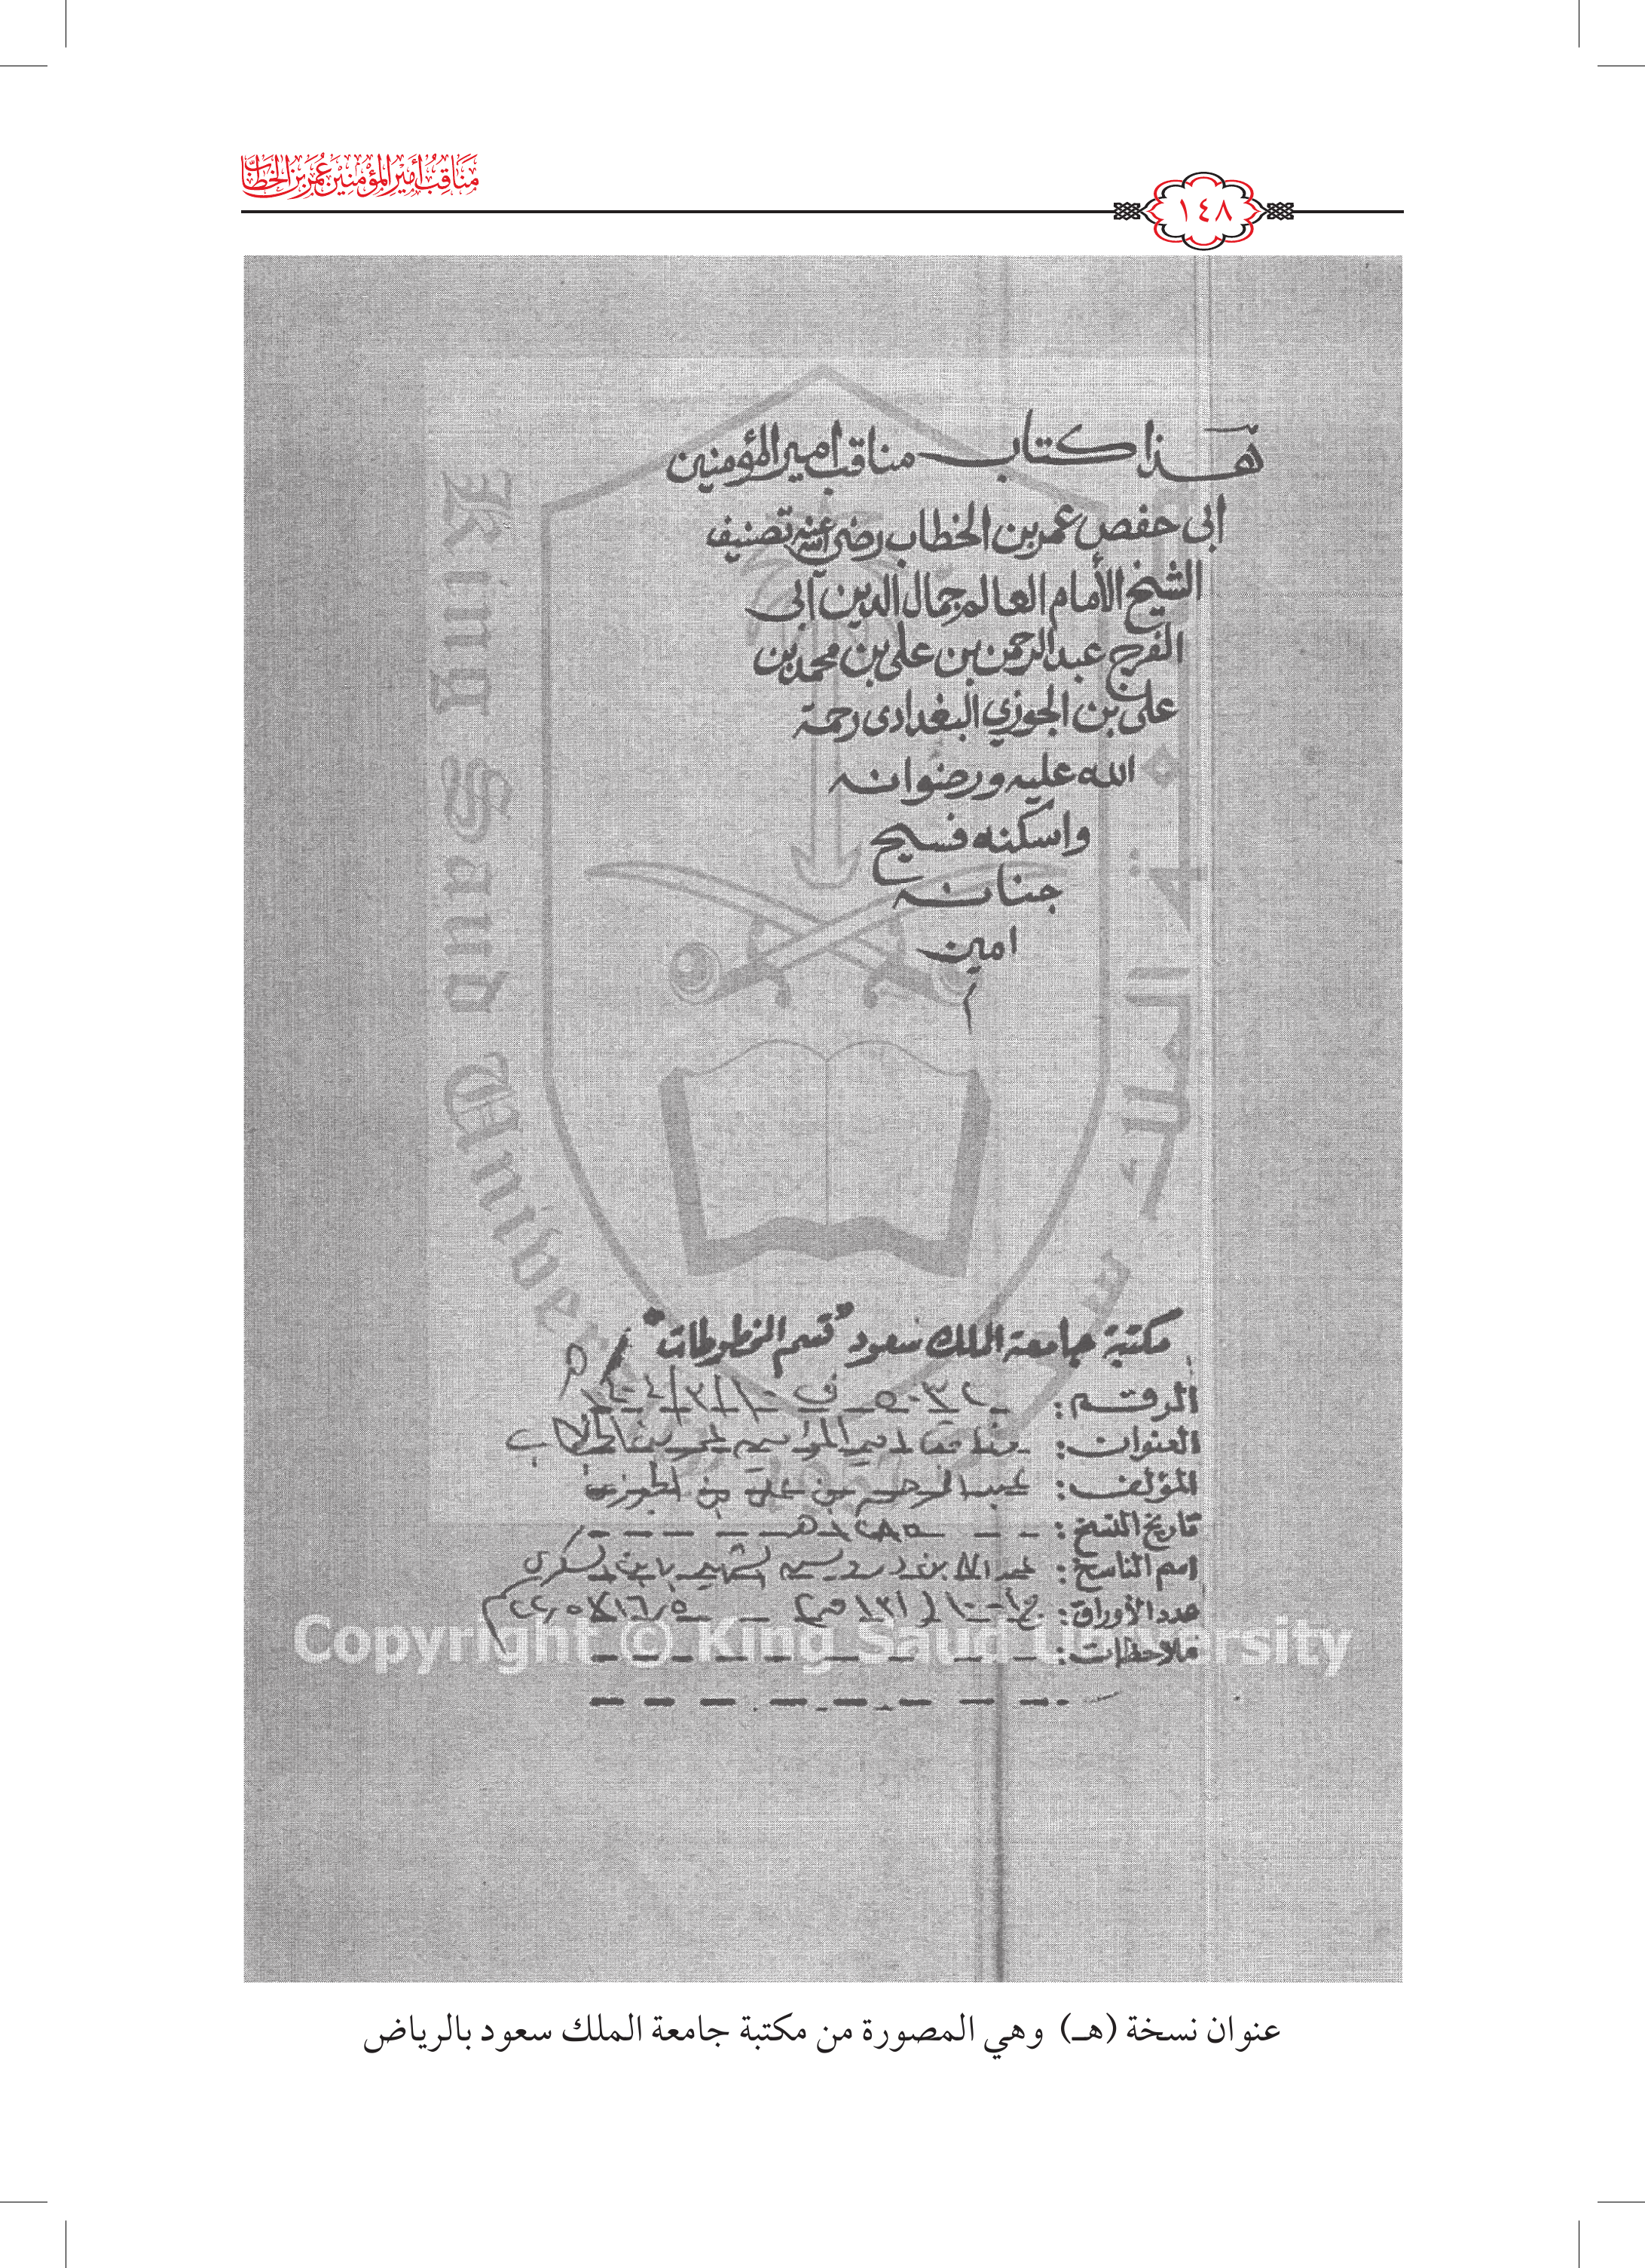 مناقب أمير المؤمنين عمر بن الخطاب
١٤٨
هذا كتاب مناقب امير المؤمنين
ابى حفص عمر بن الخطاب رضى الله عنه تصنيف
الشيخ الأمام العالم جمال الدين ابى
الفرج عبد الرحمن بن على بن محمد بن
على بن الجوزي البغدادى رحمة
الله عليه ورضوانه
واسكنه فسيح
جنانه
امين
King Saud Univer
مكتبة جامعة الملك سعود "قسم المخطوطات"
الرقم:
العنوان: مناقب امير المؤمنين عمر بن الخطاب
المؤلف: عبد الرحمن بن علي بن الجوزي
تاريخ النسخ: ١٢٨٥هـ
اسم الناسخ:
عدد الأوراق:
ملاحظات:
Copyright © King Saud University
عنوان نسخة (هـ) وهي المصورة من مكتبة جامعة الملك سعود بالرياض